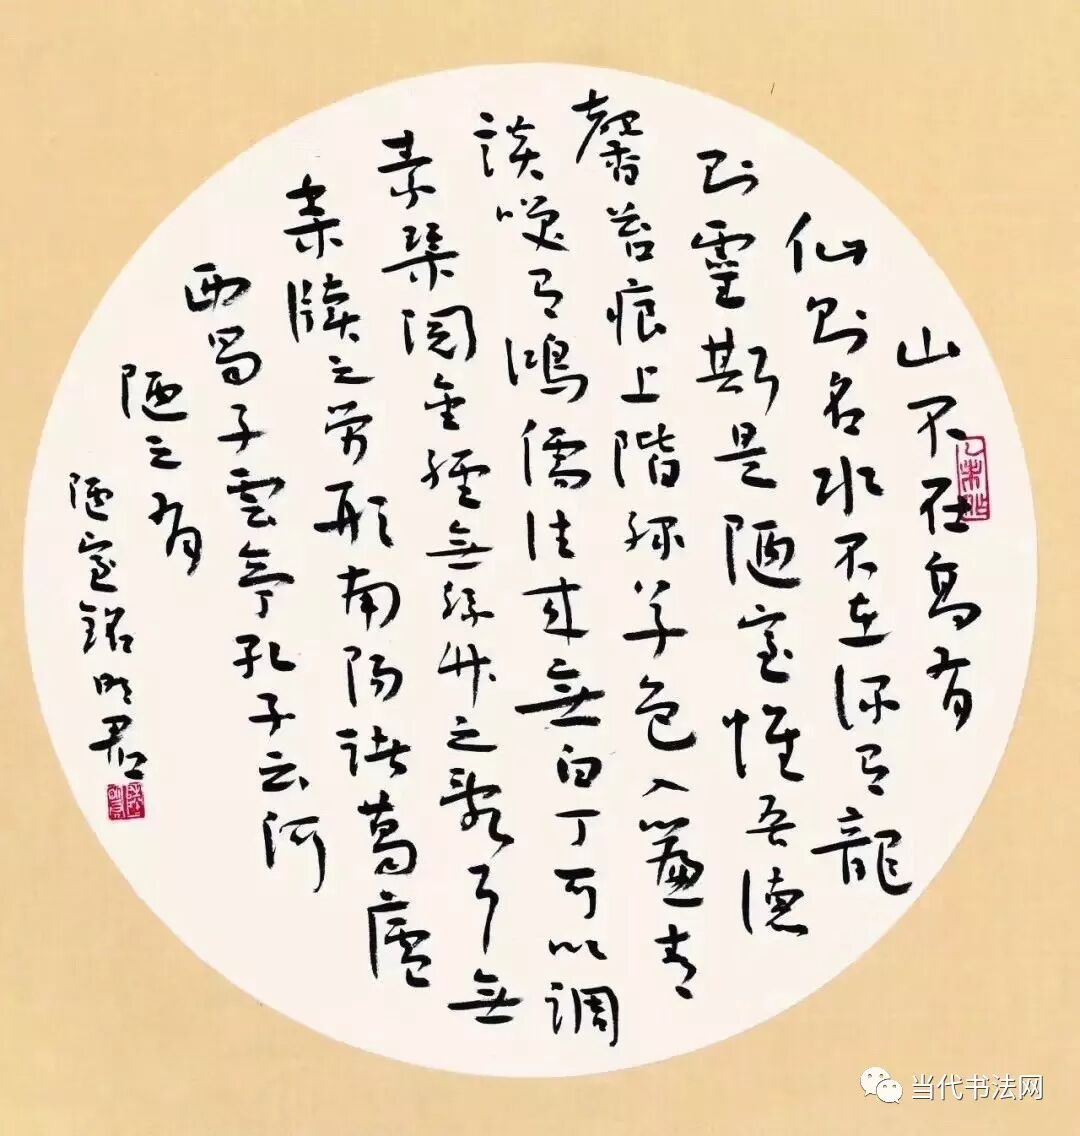 山不在高有
仙则名水不在深有龍
则靈斯是陋室惟吾德
馨苔痕上階綠草色入簾青
談咲有鴻儒往來無白丁可以調
素琴閱金經無絲竹之亂耳無
案牘之勞形南陽諸葛廬
西蜀子雲亭孔子云何
陋之有
陋室銘明君
当代书法网